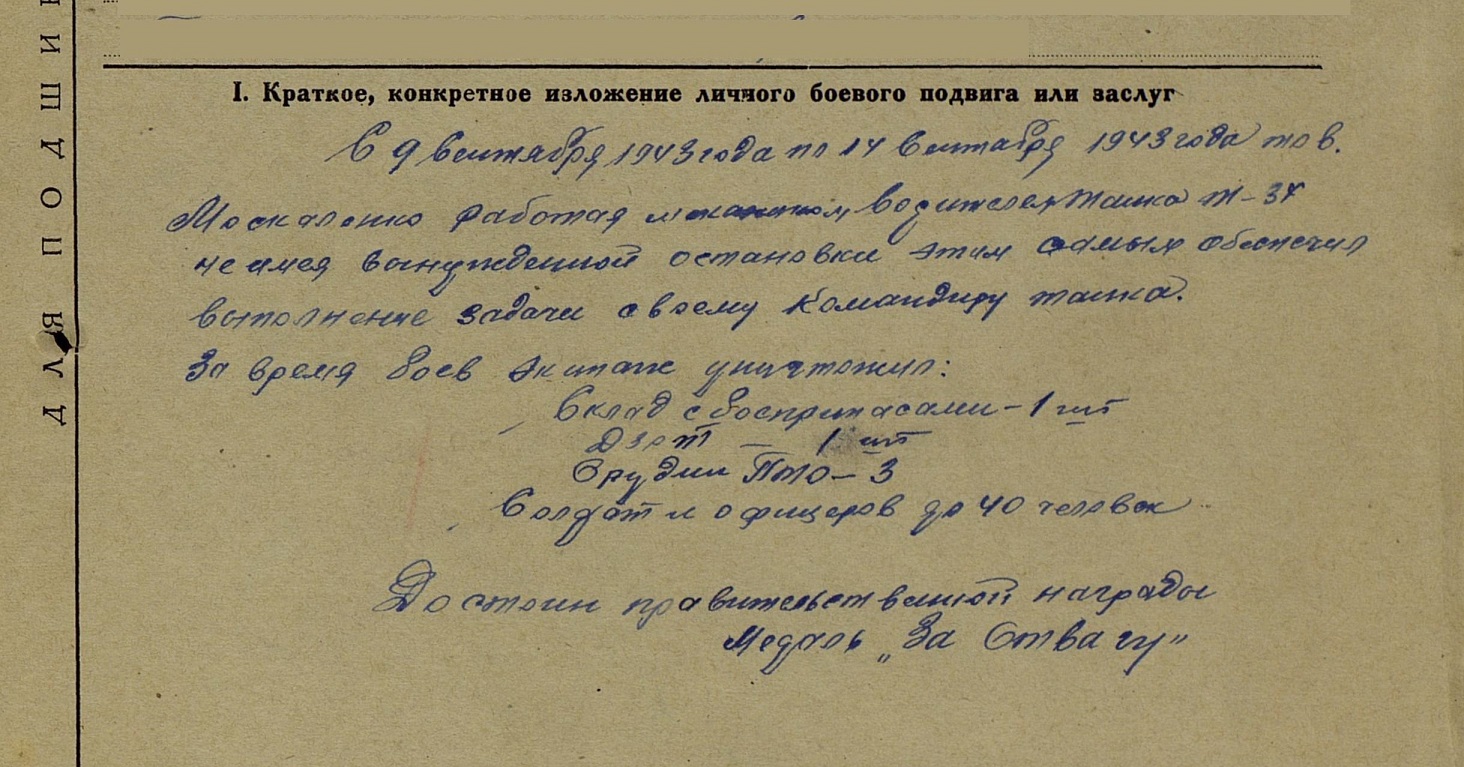 I. Краткое, конкретное изложение личного боевого подвига или заслуг
С 9 Сентября 1943 года по 14 Сентября 1943 года тов.
Москаленко работая механиком, водителем танка Т-34
не имея вынужденной остановки этим самым обеспечил
выполнение задачи своему командиру танка.
За время боев экипаж уничтожил:
Склад с боеприпасами - 1 шт
Дзот - 1 шт
Орудии ПТО - 3
Солдат и офицеров до 40 человек
Достоин правительственной награды
Медаль „За Отвагу"
ДЛЯ ПОДШИВ